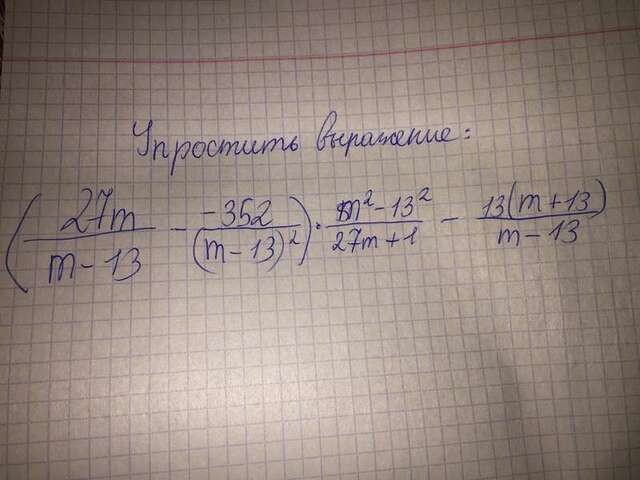 Упростить выражение:
(27m/(m-13) - -352/(m-13)²) · (m²-13²)/(27m+1) - 13(m+13)/(m-13)